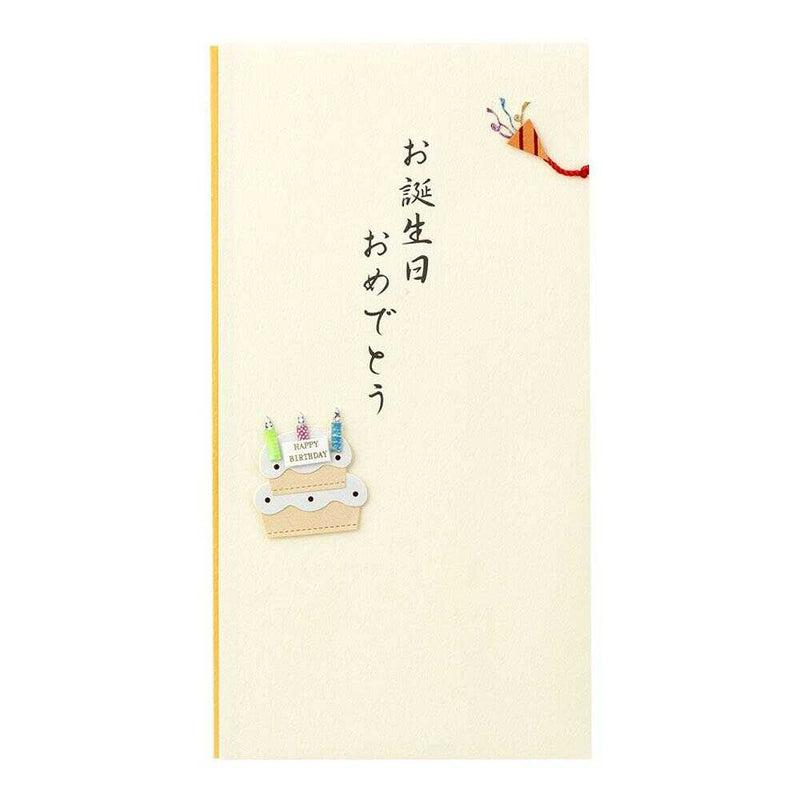 お誕生日
おめでとう
HAPPY
BIRTHDAY